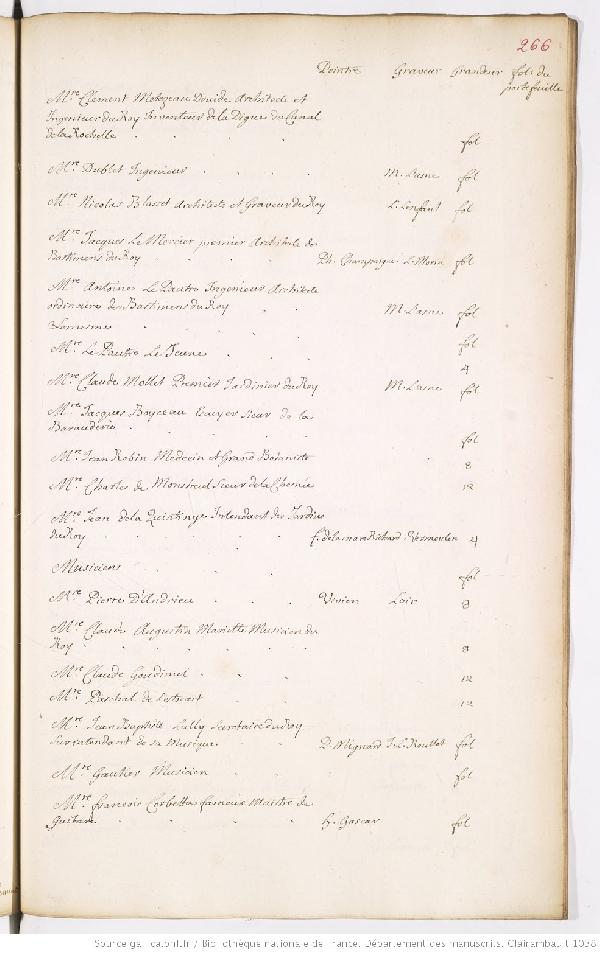 266
Peintre Graveur Grandeur fol. du
porte feuille
Mre. Clement Metezeau Architecte et
Ingenieur du Roy Inventeur de la Digue du Canal
de la Rochelle fol
Mre. Dublet Ingenieur M. Lasne fol
Mre. Nicolas Blasset Architecte et Graveur du Roy L. Lenfant fol
Mre. Jacques Le Mercier premier Architecte des
Bastimens du Roy Ph. Champaigne fol
Mre. Antoines Le Pautre Ingenieur Architecte
ordinaire des Bastimens du Roy M. Lasne fol
Le mesme fol
Mre. Le Pautre Le Jeune 4
Mre. Claude Mollet Premier Jardinier du Roy M. Lasne fol
Mre. Jacques Boyceau Escuyer Sieur de la
Barauderie fol
Mre. Jean Robin Medecin et Grand Botaniste 8
Mre. Charles de Monstreul Sieur de la Chesnée 12
Mre. Jean de la Quintinye Intendant des Jardins
du Roy f. de la mare Richard Vermeulen 4
Musiciens fol
Mre. Pierre d'Andrieu Vivien Loir 8
Mre. Claude Augustin Mariette Musicien du
Roy 8
Mre. Claude Goudimel 12
Mre. Paschal de Lestocart 12
Mre. Jean Baptiste Lully Secretaire du Roy
Surintendant de sa Musique P. Mignard J. L. Roullet fol
Mre. Gautier Musicien fol
Mre. francois Corbetta fameux Maistre de
Guitare h. Gascar fol
Source gallica.bnf.fr / Bibliothèque nationale de France. Département des manuscrits. Clairambault 1038